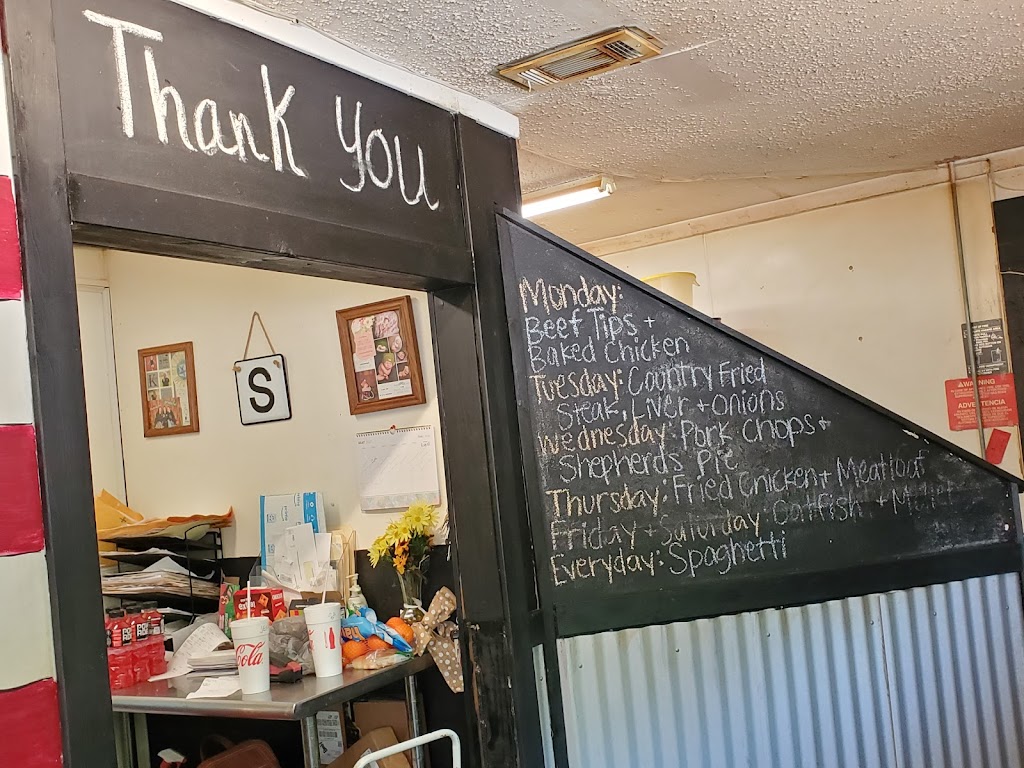 Thank you
S
Monday:
Beef Tips +
Baked Chicken
Tuesday: Country Fried
Steak, Liver + onions
Wednesday: Pork Chops +
Shepherds Pie
Thursday: Fried Chicken + Meatloaf
Friday + Saturday: Catfish +
Everyday: Spaghetti
WARNING
ADVERTENCIA
Cola